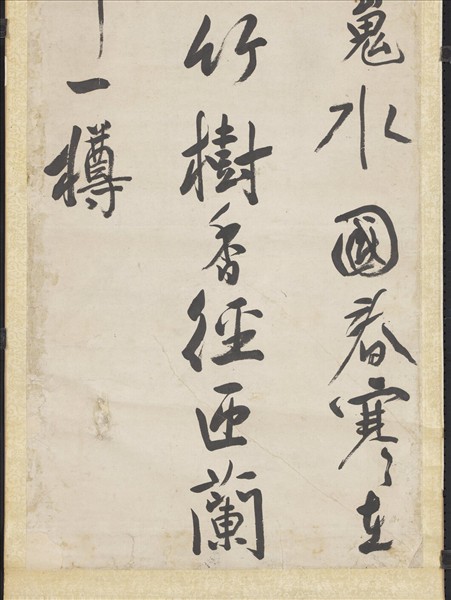 水國春寒在
竹樹香徑匝蘭
一樽